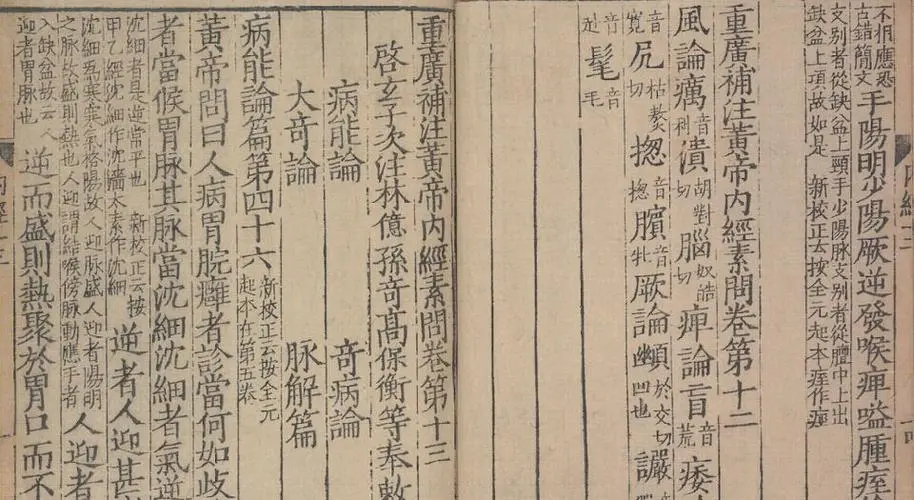 不相應恐
古錯簡文
手陽明少陽厥逆發喉痺嗌腫痓
支别者從缺盆上頸手少陽脉支别者從膻中上出
缺盆上項故如是 新校正云按全元起本痓作痙
重廣補注黃帝內經素問卷第十二
風論癘音潰胡對切腦奴晧切痺論肓音荒痿
音寬尻枯熬切揔音揔臏音牝厥論䫜於交切幽凹也讝
髦毛
重廣補注黃帝內經素問卷第十三
啓玄子次注林億孫奇高保衡等奉敕
病能論 奇病論
大奇論 脉解篇
病能論篇第四十六
新校正云按全元
起本在第五卷
黃帝問曰人病胃脘癰者診當何如歧
者當候胃脉其脉當沈細沈細者氣逆
沈細者是逆常平也 新校正云按
甲乙經沈細作沈濇太素作沈細
逆者人迎甚
沈細爲寒寒氣格陽故人迎脉盛人迎者陽明
之脉故盛則熱也人迎謂結喉傍脉動應手者
人迎者
入缺盆故云人
迎者胃脉也
逆而盛則熱聚於胃口而不